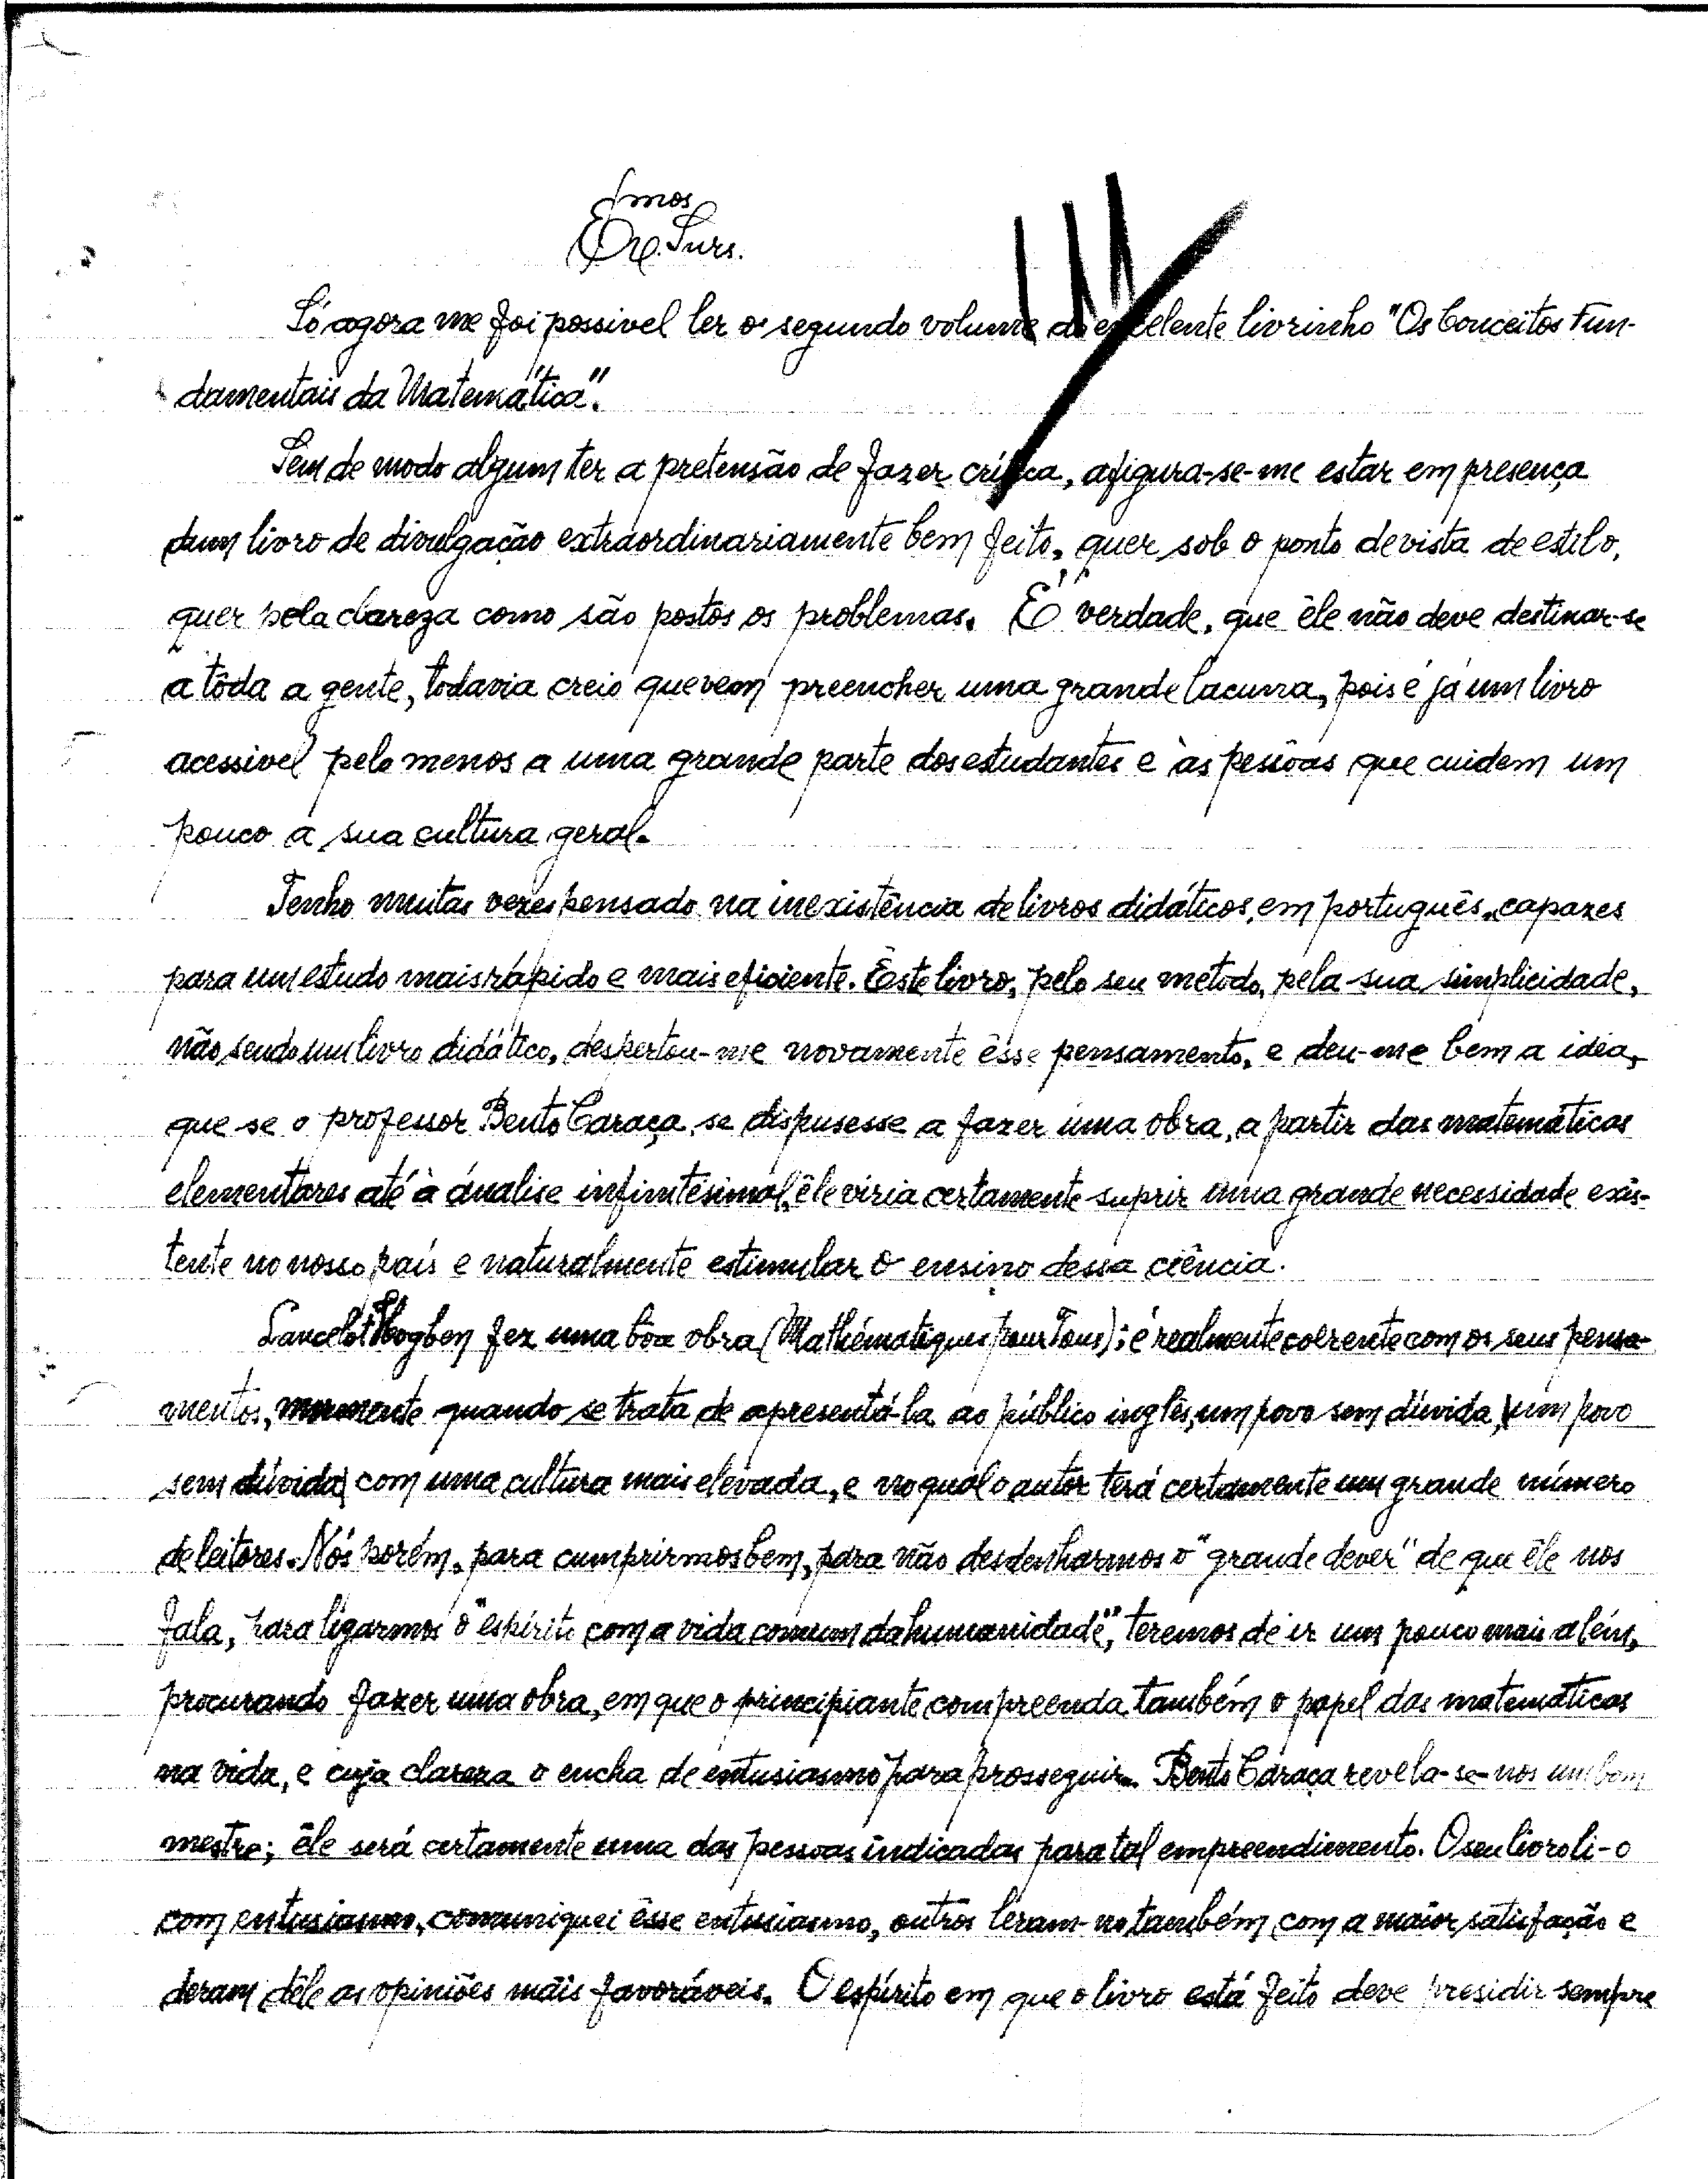 Exmos
Snrs.
Só agora me foi possivel ler o segundo volume do excelente livrinho "Os Conceitos Fun-
damentais da Matemática".
Sem de modo algum ter a pretensão de fazer crítica, afigura-se-me estar em presença
dum livro de divulgação extraordinariamente bem feito, quer sob o ponto de vista de estilo,
quer pela clareza como são postos os problemas. É verdade, que êle não deve destinar-se
a tôda a gente, todavia creio que vem preencher uma grande lacuna, pois é já um livro
acessivel pelo menos a uma grande parte dos estudantes e às pessôas que cuidem um
pouco a sua cultura geral.
Tenho muitas vezes pensado na inexistência de livros didáticos, em português, capazes
para um estudo mais rápido e mais eficiente. Êste livro, pelo seu metodo, pela sua simplicidade,
não sendo um livro didático, despertou-me novamente êsse pensamento, e deu-me bem a idéa,
que se o professor Bento Caraça se dispusesse a fazer uma obra, a partir das matemáticas
elementares até à análise infinitésimal, êle viria certamente suprir uma grande necessidade exis-
tente no nosso país e naturalmente estimular o ensino dessa ciência.
Lancelot Hogben fez uma bôa obra (Mathématiques pour Tous); é realmente coerente com os seus pensa-
mentos, mormente quando se trata de apresentá-la ao público inglês, um povo sem dúvida, (um povo
sem dúvida) com uma cultura mais elevada, e no qual o autor terá certamente um grande número
de leitores. Nós porém, para cumprirmos bem, para não desdenharmos o "grande dever" de que êle nos
fala, para ligarmos o "espírito com a vida comum da humanidade", teremos de ir um pouco mais além,
procurando fazer uma obra, em que o principiante compreenda também o papel das matemáticas
na vida, e cuja clareza o encha de entusiasmo para prosseguir. Bento Caraça revela-se-nos um bom
mestre; êle será certamente uma das pessoas indicadas para tal empreendimento. O seu livro li-o
com entusiasmo, comuniquei êsse entusiasmo, outros leram-no também com a maior satisfação e
deram dêle as opiniões mais favoráveis. O espírito em que o livro está feito deve presidir sempre